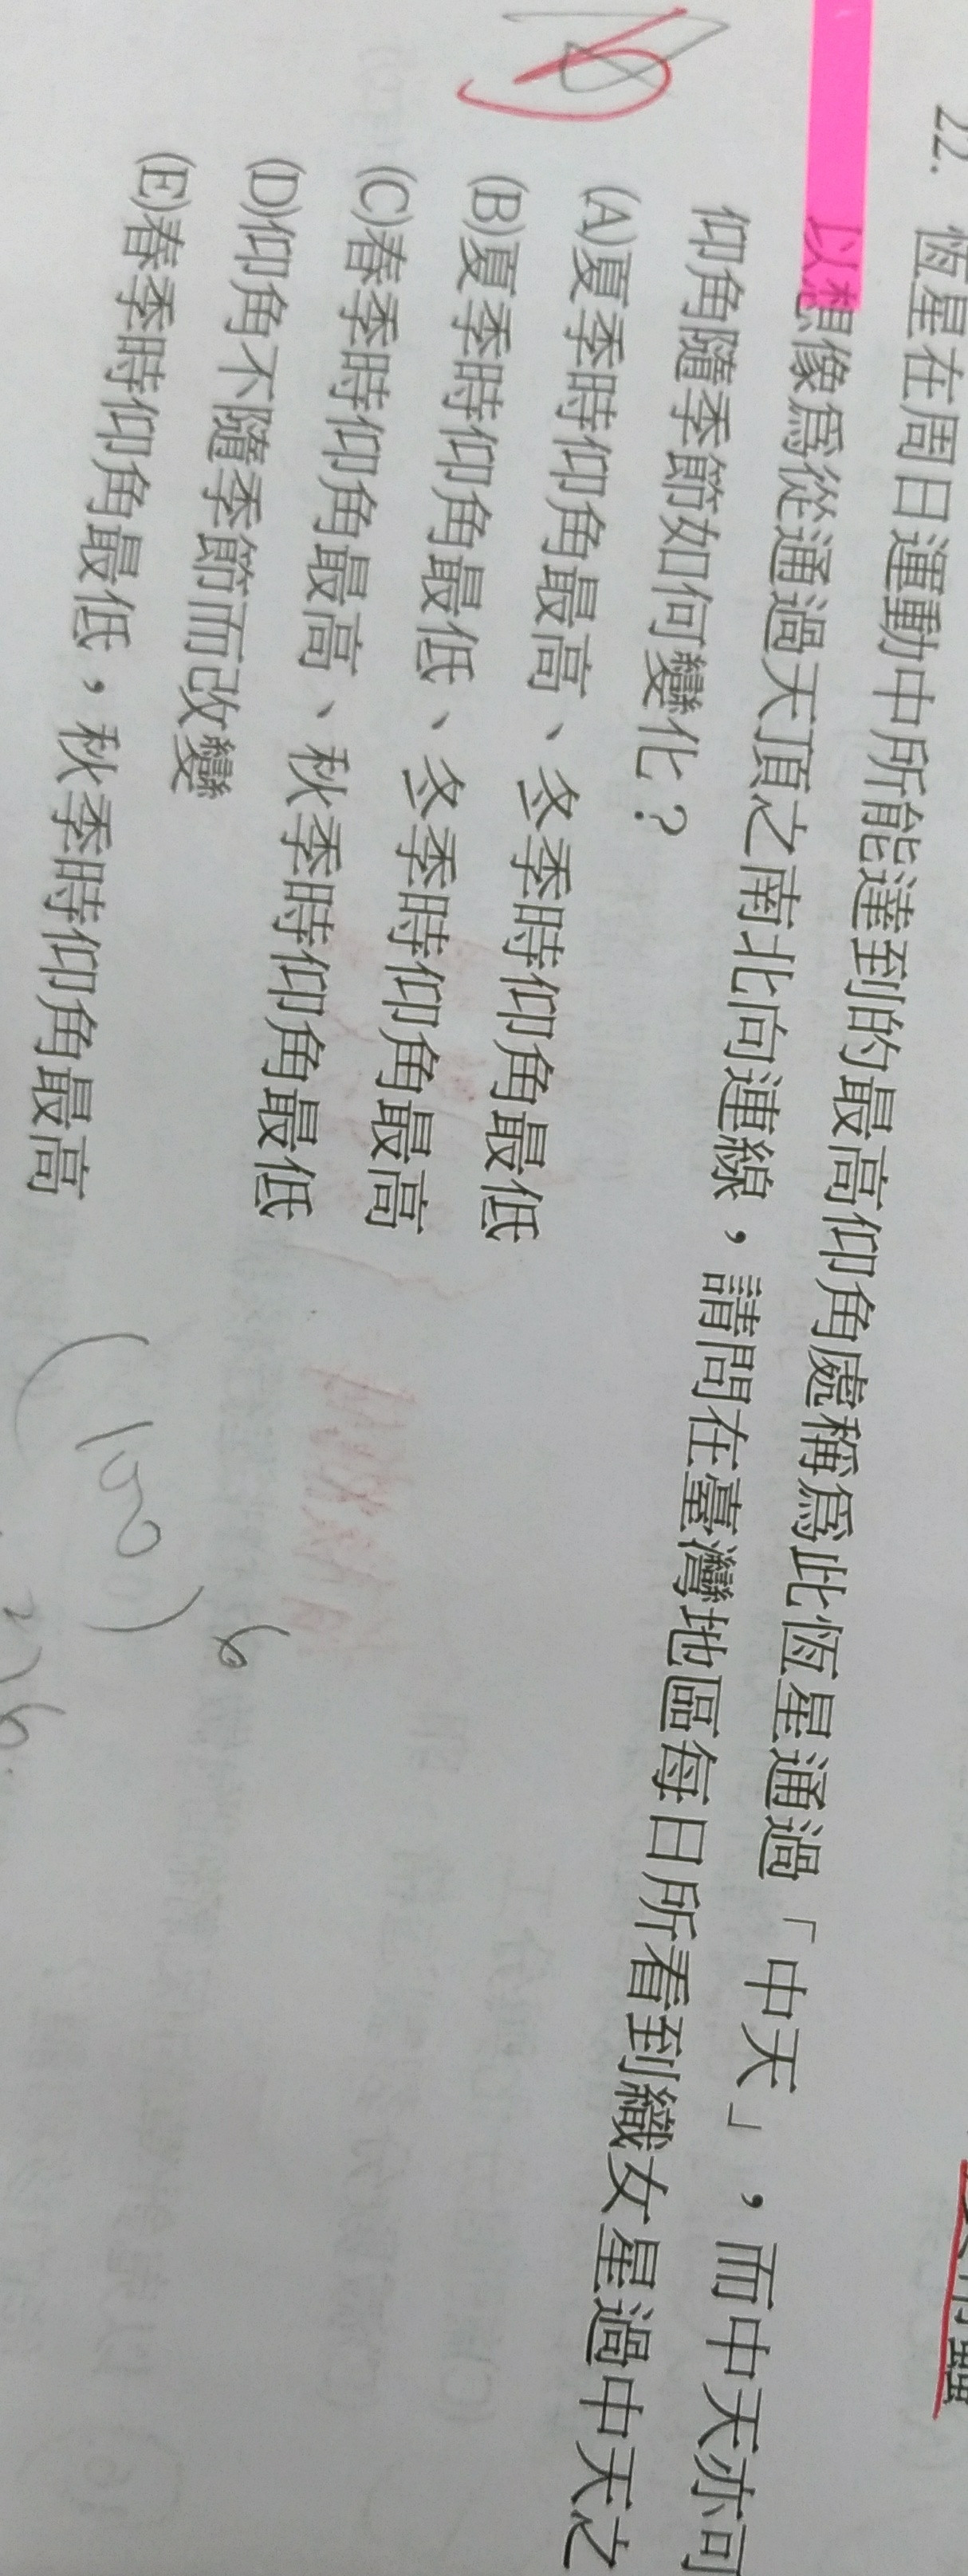 22. 恆星在周日運動中所能達到的最高仰角處稱爲此恆星通過「中天」，而中天亦可
以想像爲從通過天頂之南北向連線，請問在臺灣地區每日所看到織女星過中天之
仰角隨季節如何變化？
(A)夏季時仰角最高、冬季時仰角最低
(B)夏季時仰角最低、冬季時仰角最高
(C)春季時仰角最高、秋季時仰角最低
(D)仰角不隨季節而改變
(E)春季時仰角最低，秋季時仰角最高
(100)
6